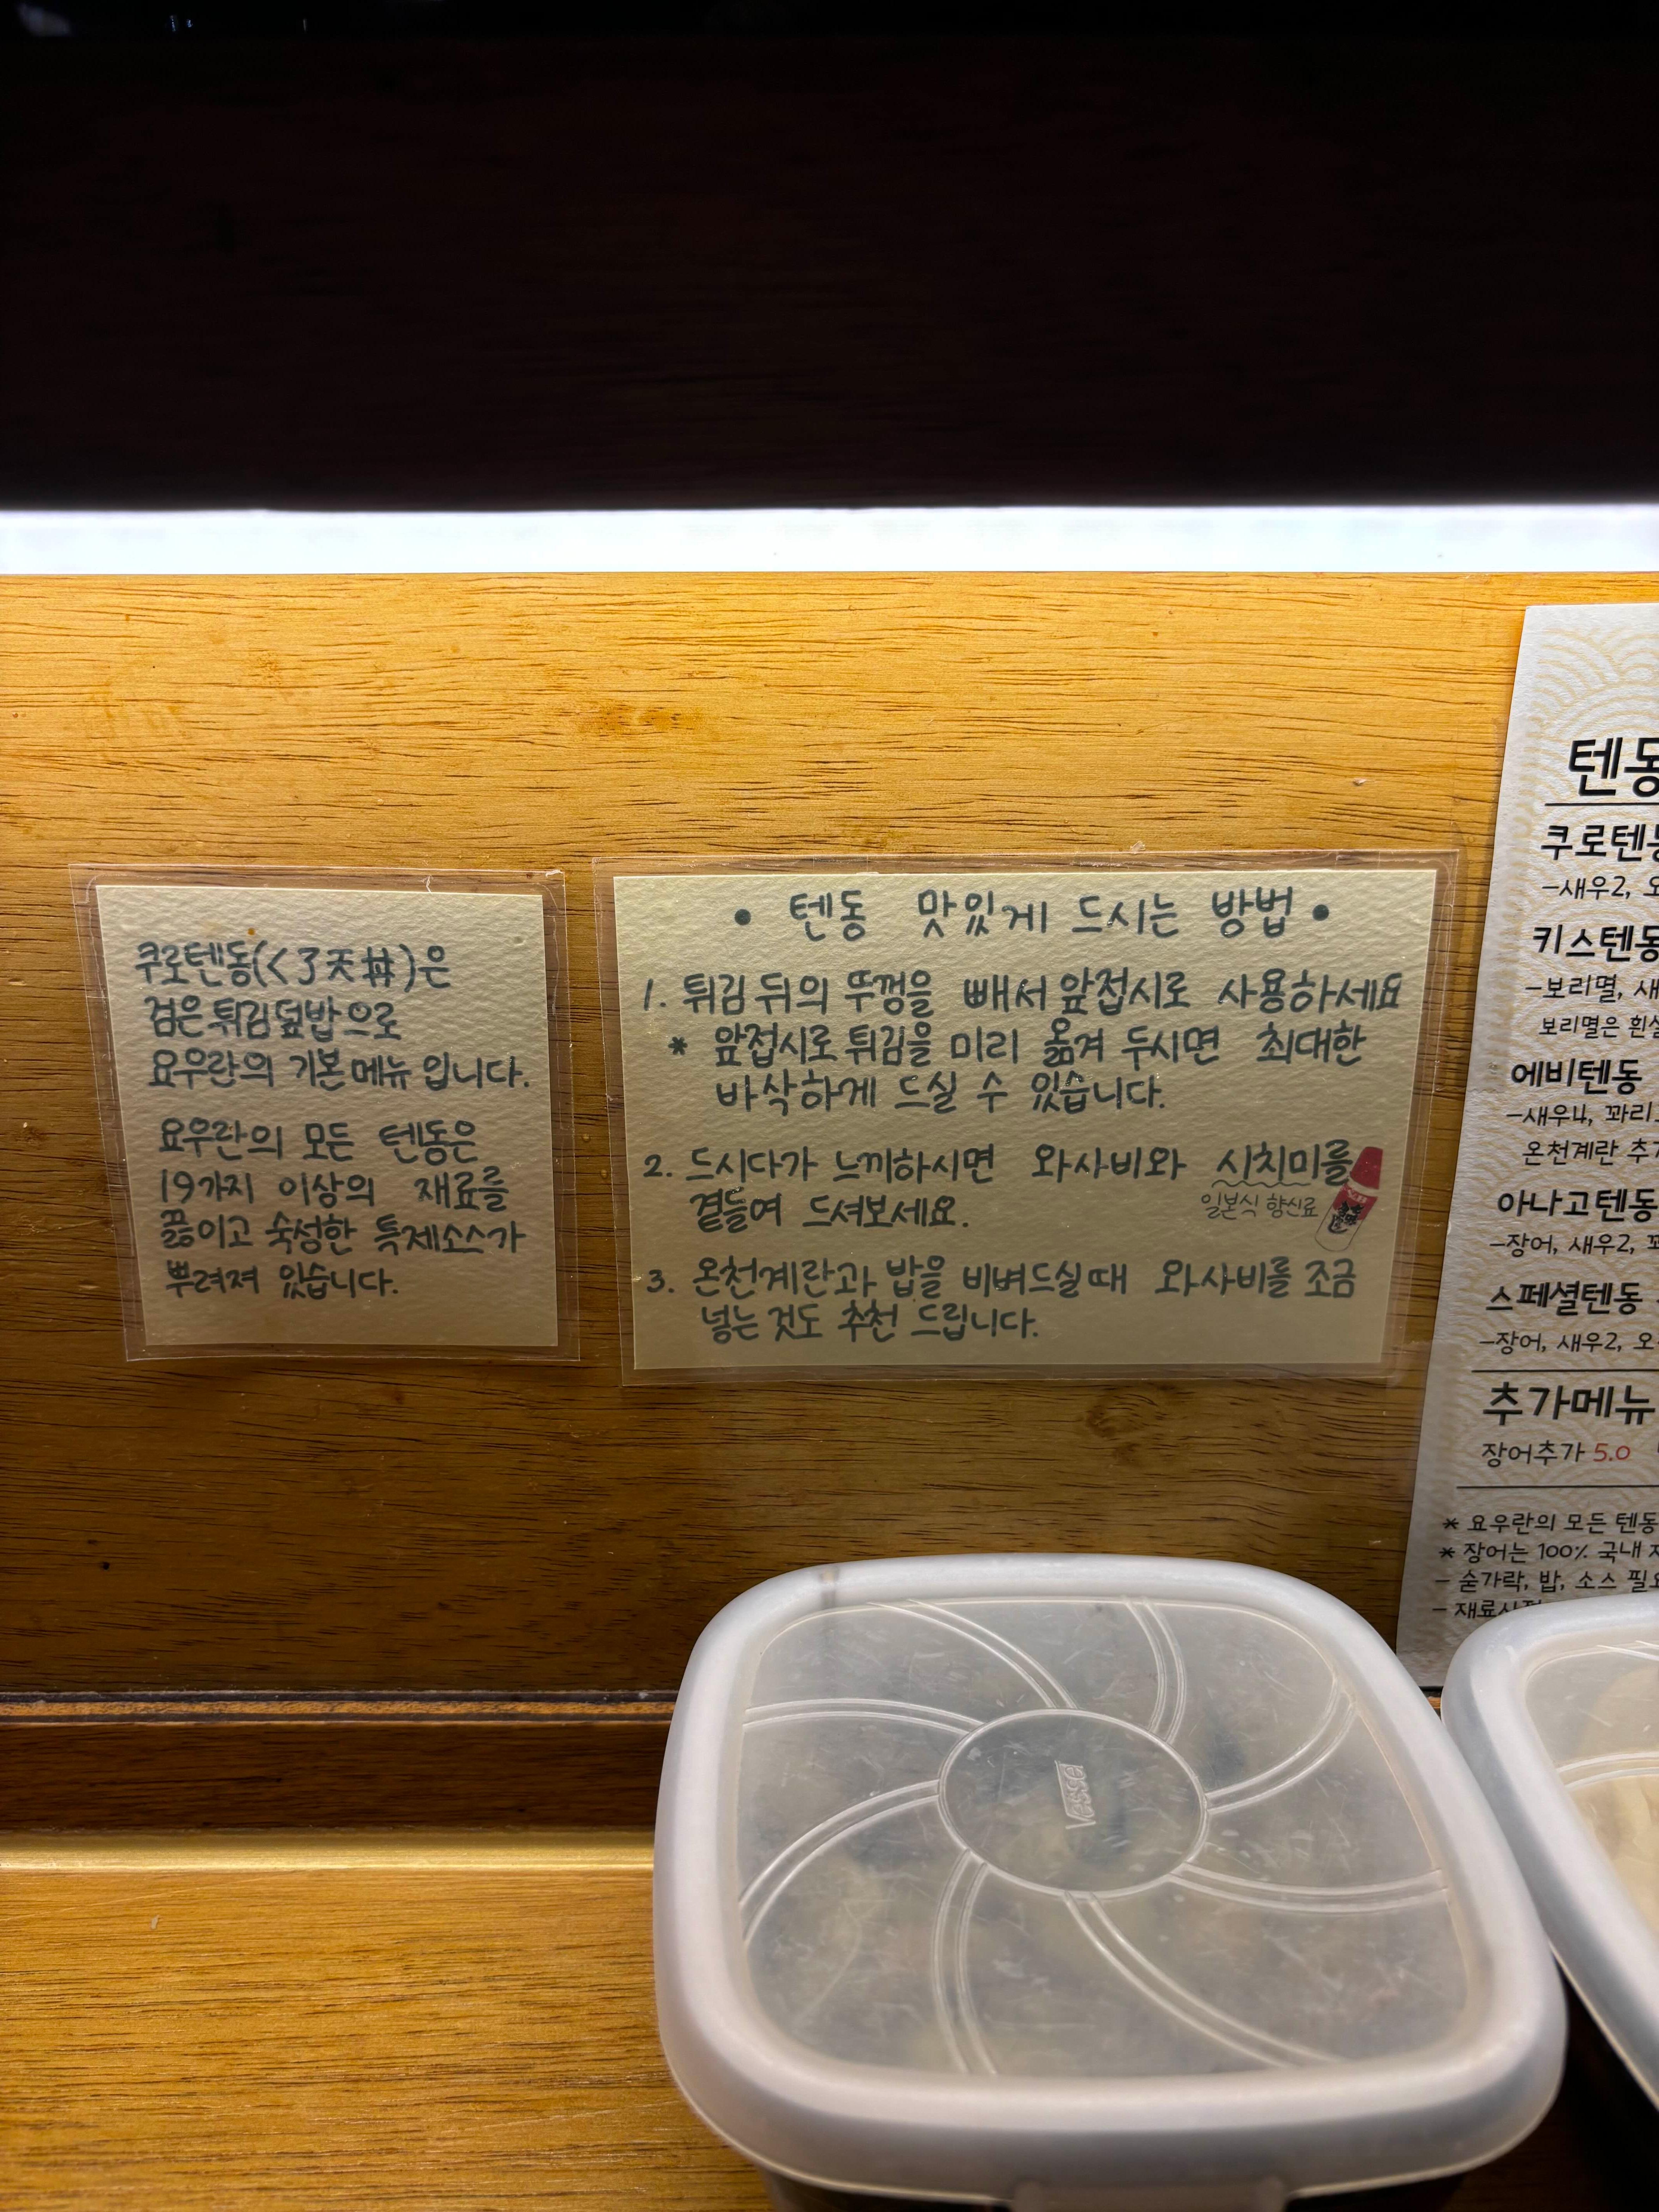 쿠로텐동(くろ天丼)은
검은 튀김덮밥으로
요우란의 기본 메뉴 입니다.
요우란의 모든 텐동은
19가지 이상의 재료를
끓이고 숙성한 특제소스가
뿌려져 있습니다.
• 텐동 맛있게 드시는 방법 •
1. 튀김 뒤의 뚜껑을 빼서 앞접시로 사용하세요
* 앞접시로 튀김을 미리 옮겨 두시면 최대한
바삭하게 드실 수 있습니다.
2. 드시다가 느끼하시면 와사비와 시치미를
일본식 향신료
곁들여 드셔보세요.
3. 온천계란과 밥을 비벼드실 때 와사비를 조금
넣는 것도 추천 드립니다.
텐동
쿠로텐동
-새우2,
키스텐동
-보리멸,
보리멸은
에비텐동
-새우4,
온천계란
아나고텐동
-장어, 새우2,
스페셜텐동
-장어, 새우2,
추가메뉴
장어추가 5.0
* 요우란의 모든 텐동
* 장어는 100% 국내
- 숟가락, 밥, 소스
Vesse